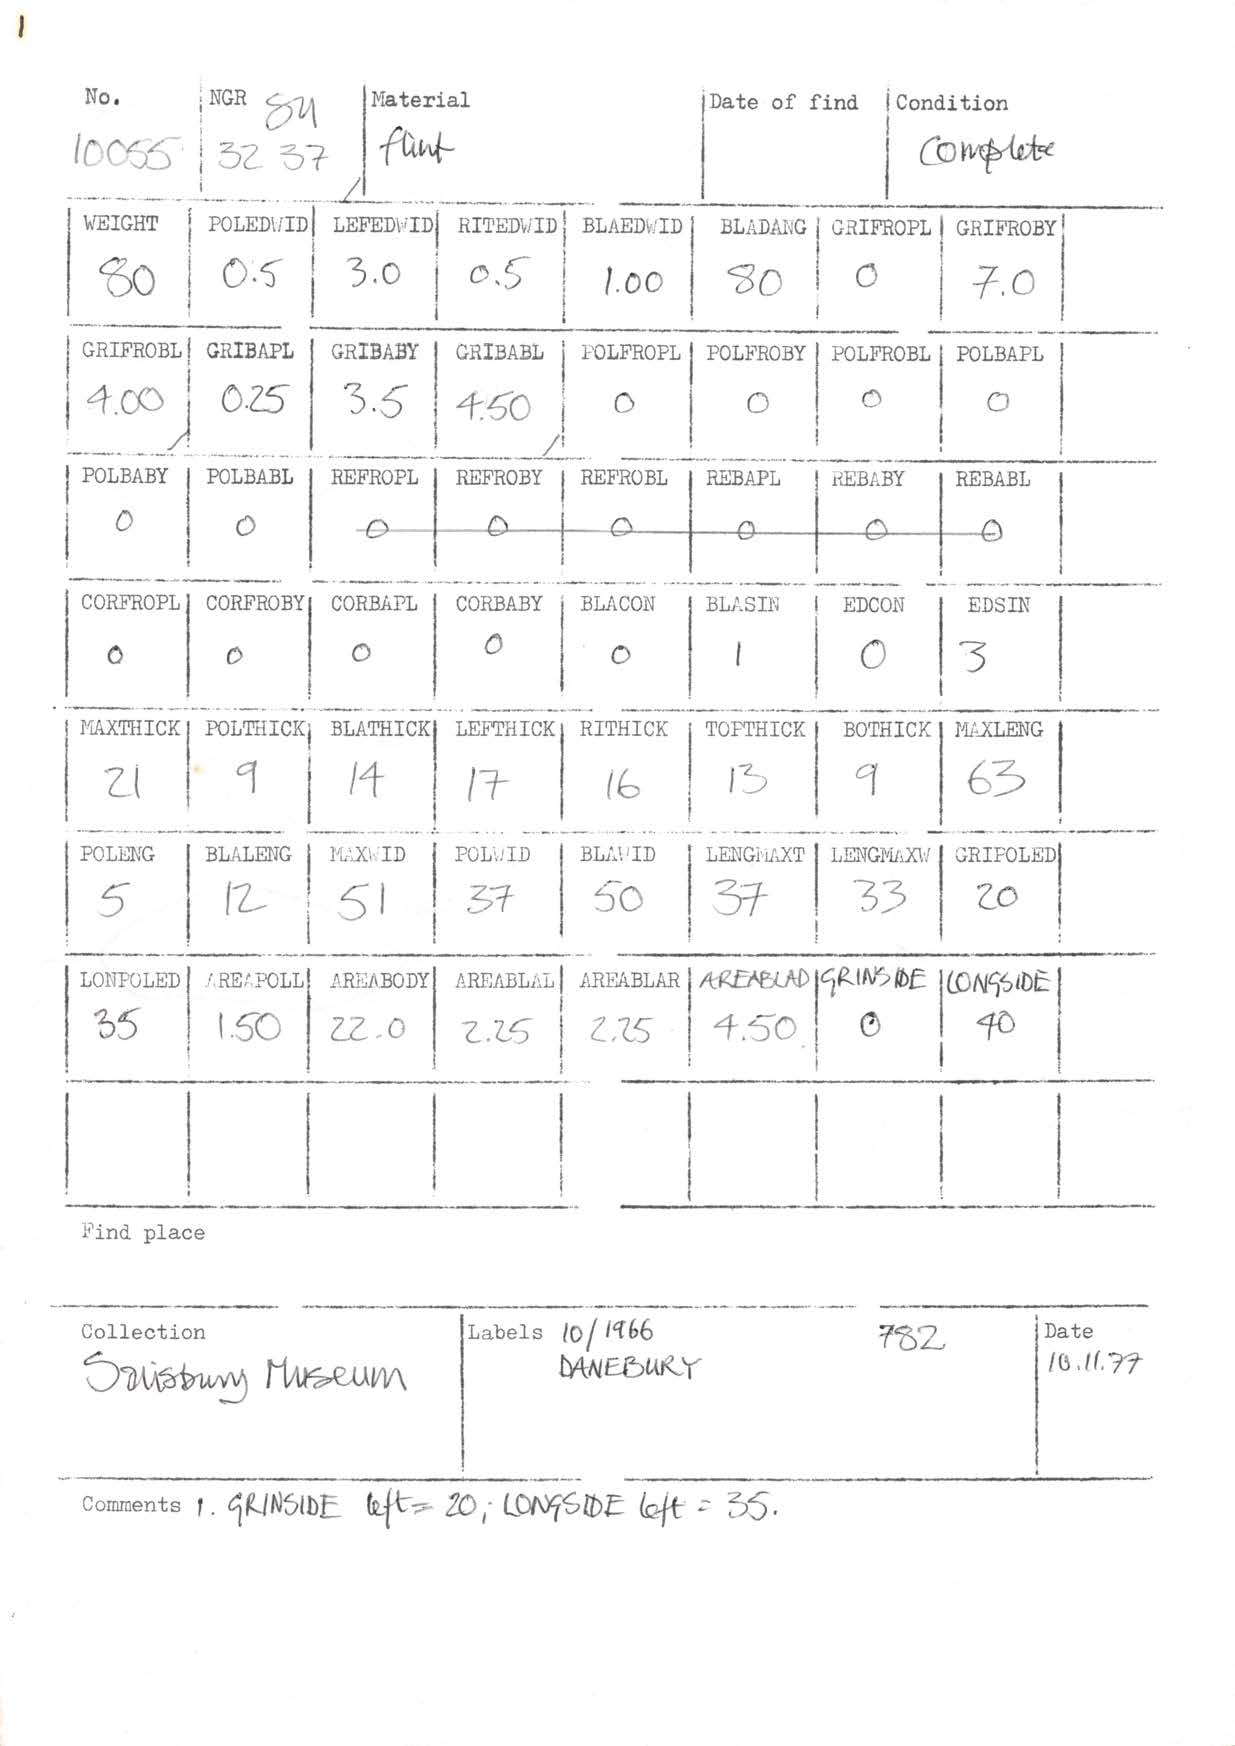 1
No. NGR SU Material Date of find Condition
10055 32 37 flint complete
WEIGHT POLEDWID LEFEDWID RITEDWID BLAEDWID BLADANG GRIFROPL GRIFROBY
80 0.5 3.0 0.5 1.00 80 0 7.0
GRIFROBL GRIBAPL GRIBABY GRIBABL POLFROPL POLFROBY POLFROBL POLBAPL
4.00 0.25 3.5 4.50 0 0 0 0
POLBABY POLBABL REFROPL REFROBY REFROBL REBAPL REBABY REBABL
0 0 0 0 0 0 0 0
CORFROPL CORFROBY CORBAPL CORBABY BLACON BLASIN EDCON EDSIN
0 0 0 0 0 1 0 3
MAXTHICK POLTHICK BLATHICK LEFTHICK RITHICK TOPTHICK BOTHICK MAXLENG
21 9 14 17 16 13 9 63
POLENG BLALENG MAXWID POLWID BLAWID LENGMAXT LENGMAXW GRIPOLED
5 12 51 37 50 37 33 20
LONPOLED AREAPOLL AREABODY AREABLAL AREABLAR AREABLAD GRINSIDE LONGSIDE
35 1.50 22.0 2.25 2.25 4.50 0 40
Find place
Collection Labels 10/1966 782 Date
Salisbury Museum DANEBURY 10.11.77
Comments 1. GRINSIDE left = 20; LONGSIDE left = 35.